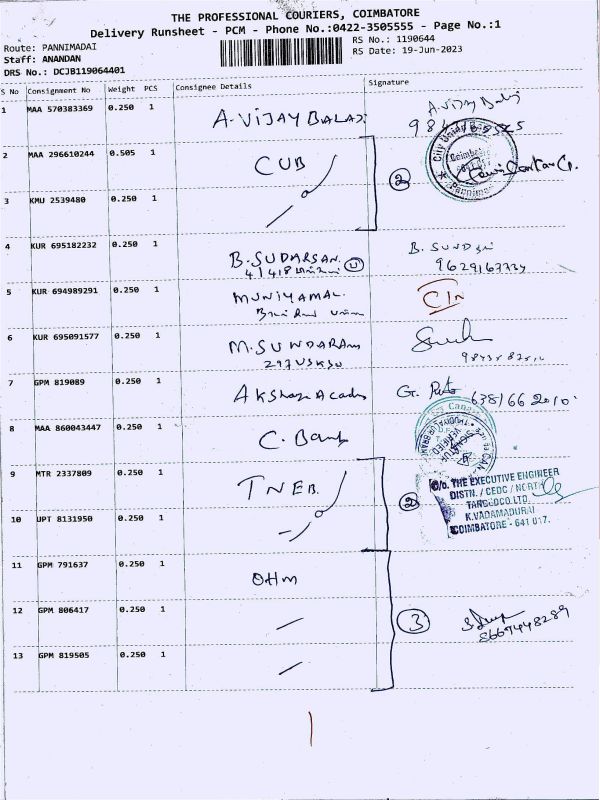 THE PROFESSIONAL COURIERS, COIMBATORE
Delivery Runsheet - PCM - Phone No.:0422-3505555 - Page No.:1
Route: PANNIMADAI
Staff: ANANDAN
DRS No.: DCJB119064401
RS No.: 1190644
RS Date: 19-Jun-2023
S No Consignment No Weight PCS Consignee Details Signature
1 MAA 570383369 0.250 1 A-VIJAY BALAJI A-Vijay Balaji
2 MAA 296610244 0.505 1 CUB
City Union
Coimbatore
2
3 KMU 2539480 0.250 1
4 KUR 695182232 0.250 1 B. SUDARSAN.
5 KUR 694989291 0.250 1 MUNIYAMAL.
6 KUR 695091577 0.250 1 M.SUNDARAM
7 GPM 819089 0.250 1 Akshaya G. 638166 2010.
8 MAA 860043447 0.250 1 C. Bank
9 MTR 2337809 0.250 1 TNEB.
O/o. THE EXECUTIVE ENGINEER
DISTN. / CEDC / NORTH
TANGEDCO LTD.
K.VADAMADURAI
COIMBATORE - 641 017.
2
10 UPT 8131950 0.250 1
11 GPM 791637 0.250 1 OHM
12 GPM 806417 0.250 1
3 8667448289
13 GPM 819505 0.250 1